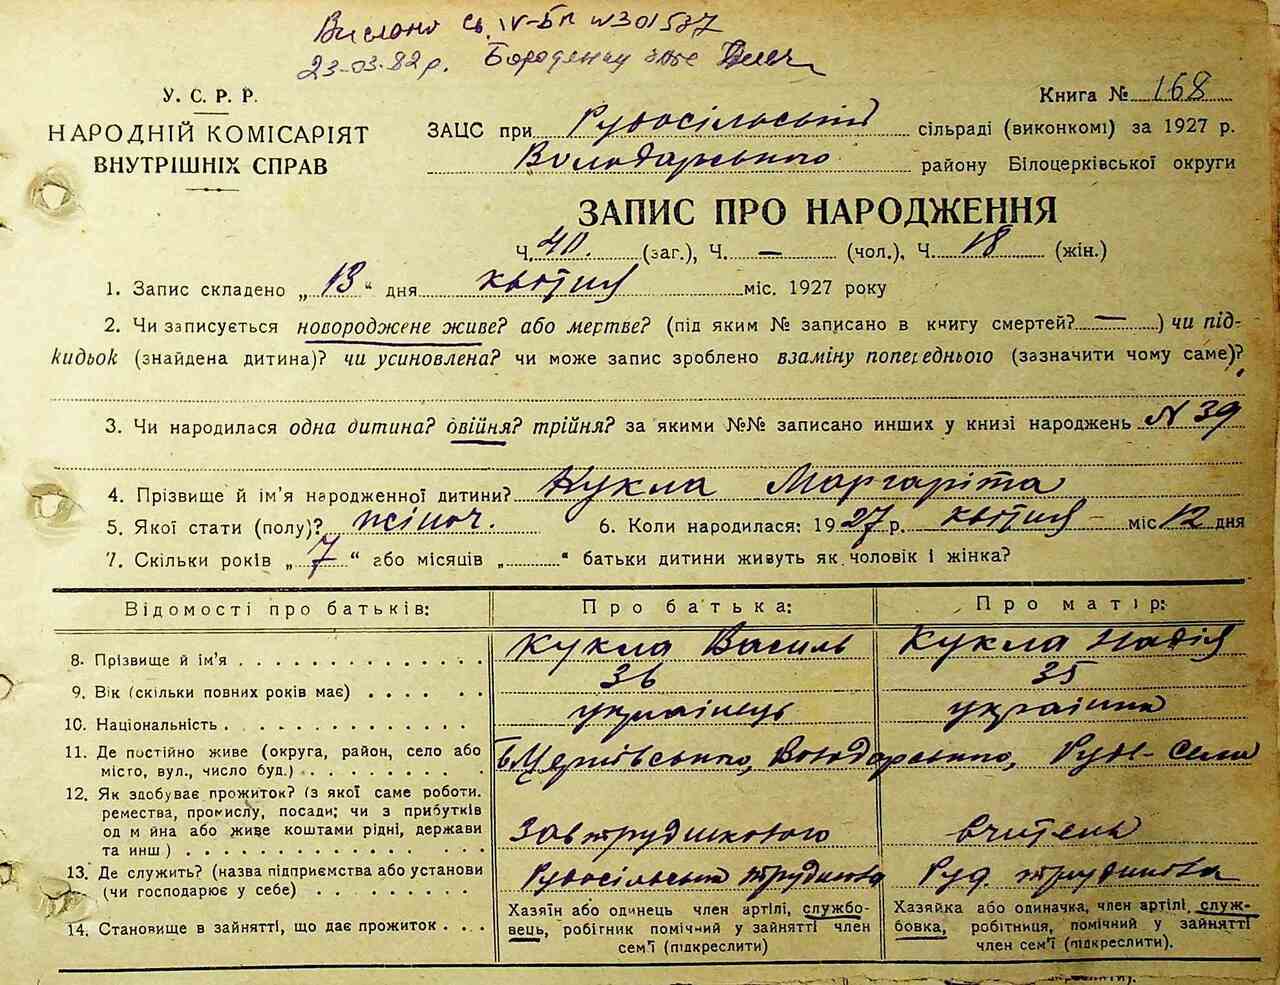 Вислано св. IV-БП №301587
23-03-82 р.
У. С. Р. Р.
НАРОДНІЙ КОМІСАРІЯТ
ВНУТРІШНІХ СПРАВ
Книга № 168
ЗАЦС при Рудосільській сільраді (виконкомі) за 1927 р.
Володарського району Білоцерківської округи
ЗАПИС ПРО НАРОДЖЕННЯ
Ч. 40. (заг.), Ч. — (чол.), Ч. 18 (жін.)
1. Запис складено „ 13 “ дня квітня міс. 1927 року
2. Чи записується новороджене живе? або мертве? (під яким № записано в книгу смертей? — ) чи під-
кидьок (знайдена дитина)? чи усиновлена? чи може запис зроблено взаміну попереднього (зазначити чому саме)?
3. Чи народилася одна дитина? двійня? трійня? за якими №№ записано инших у книзі народжень N 39
4. Прізвище й ім'я народженної дитини? Кукла Маргаріта
5. Якої стати (полу)? жіноч. 6. Коли народилася: 1927 р. квітня – міс 12 дня
7. Скільки років „ 7 “ або місяців „ “ батьки дитини живуть як чоловік і жінка?
Відомості про батьків: Про батька: Про матір:
8. Прізвище й ім'я Кукла Василь Кукла Надія
9. Вік (скільки повних років має) 36 35
10. Національність українець українка
11. Де постійно живе (округа, район, село або Б Церківського, Володарського, Руд-Село
місто, вул., число буд.)
12. Як здобуває прожиток? (з якої саме роботи.
ремества, промислу, посади; чи з прибутків
од м йна або живе коштами рідні, держави Завтрудшколою вчитель
та инш)
13. Де служить? (назва підприємства або установи Рудосільська трудшкола Руд. трудшкола
(чи господарює у себе)
14. Становище в зайнятті, що дає прожиток
Хазяїн або одинець член артілі, службо-
вець, робітник помічний у зайнятті член
сем'ї (підкреслити)
Хазяйка або одиначка, член артілі, служ-
бовка, робітниця, помічний у зайнятті
член сем'ї (підкреслити).